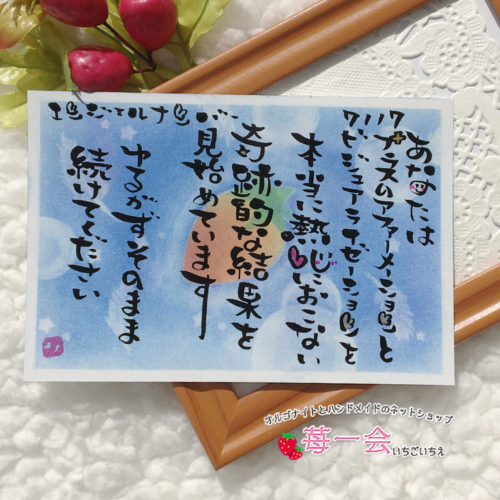 あなたは
プラスのアファーメーションと
ビジュアライゼーションを
本当に熱心におこない
奇跡的な結果を
見始めています
ゆるがずそのまま
続けてください
エンジェルナンバー
オルゴナイトとハンドメイドのネットショップ
苺一会
いちごいちえ